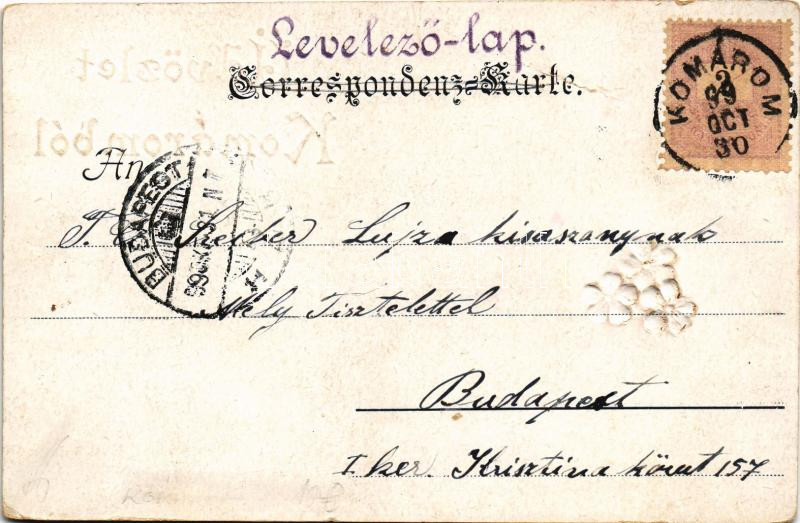 Levelező-lap.
Üdvözlet
Correspondenz-Karte.
Komáromból
KOMÁROM
99
OCT
30
An
BUDAPEST
T. Lujza kisasszonynak
Mély Tisztelettel
Budapest
I ker. Krisztina körut 157